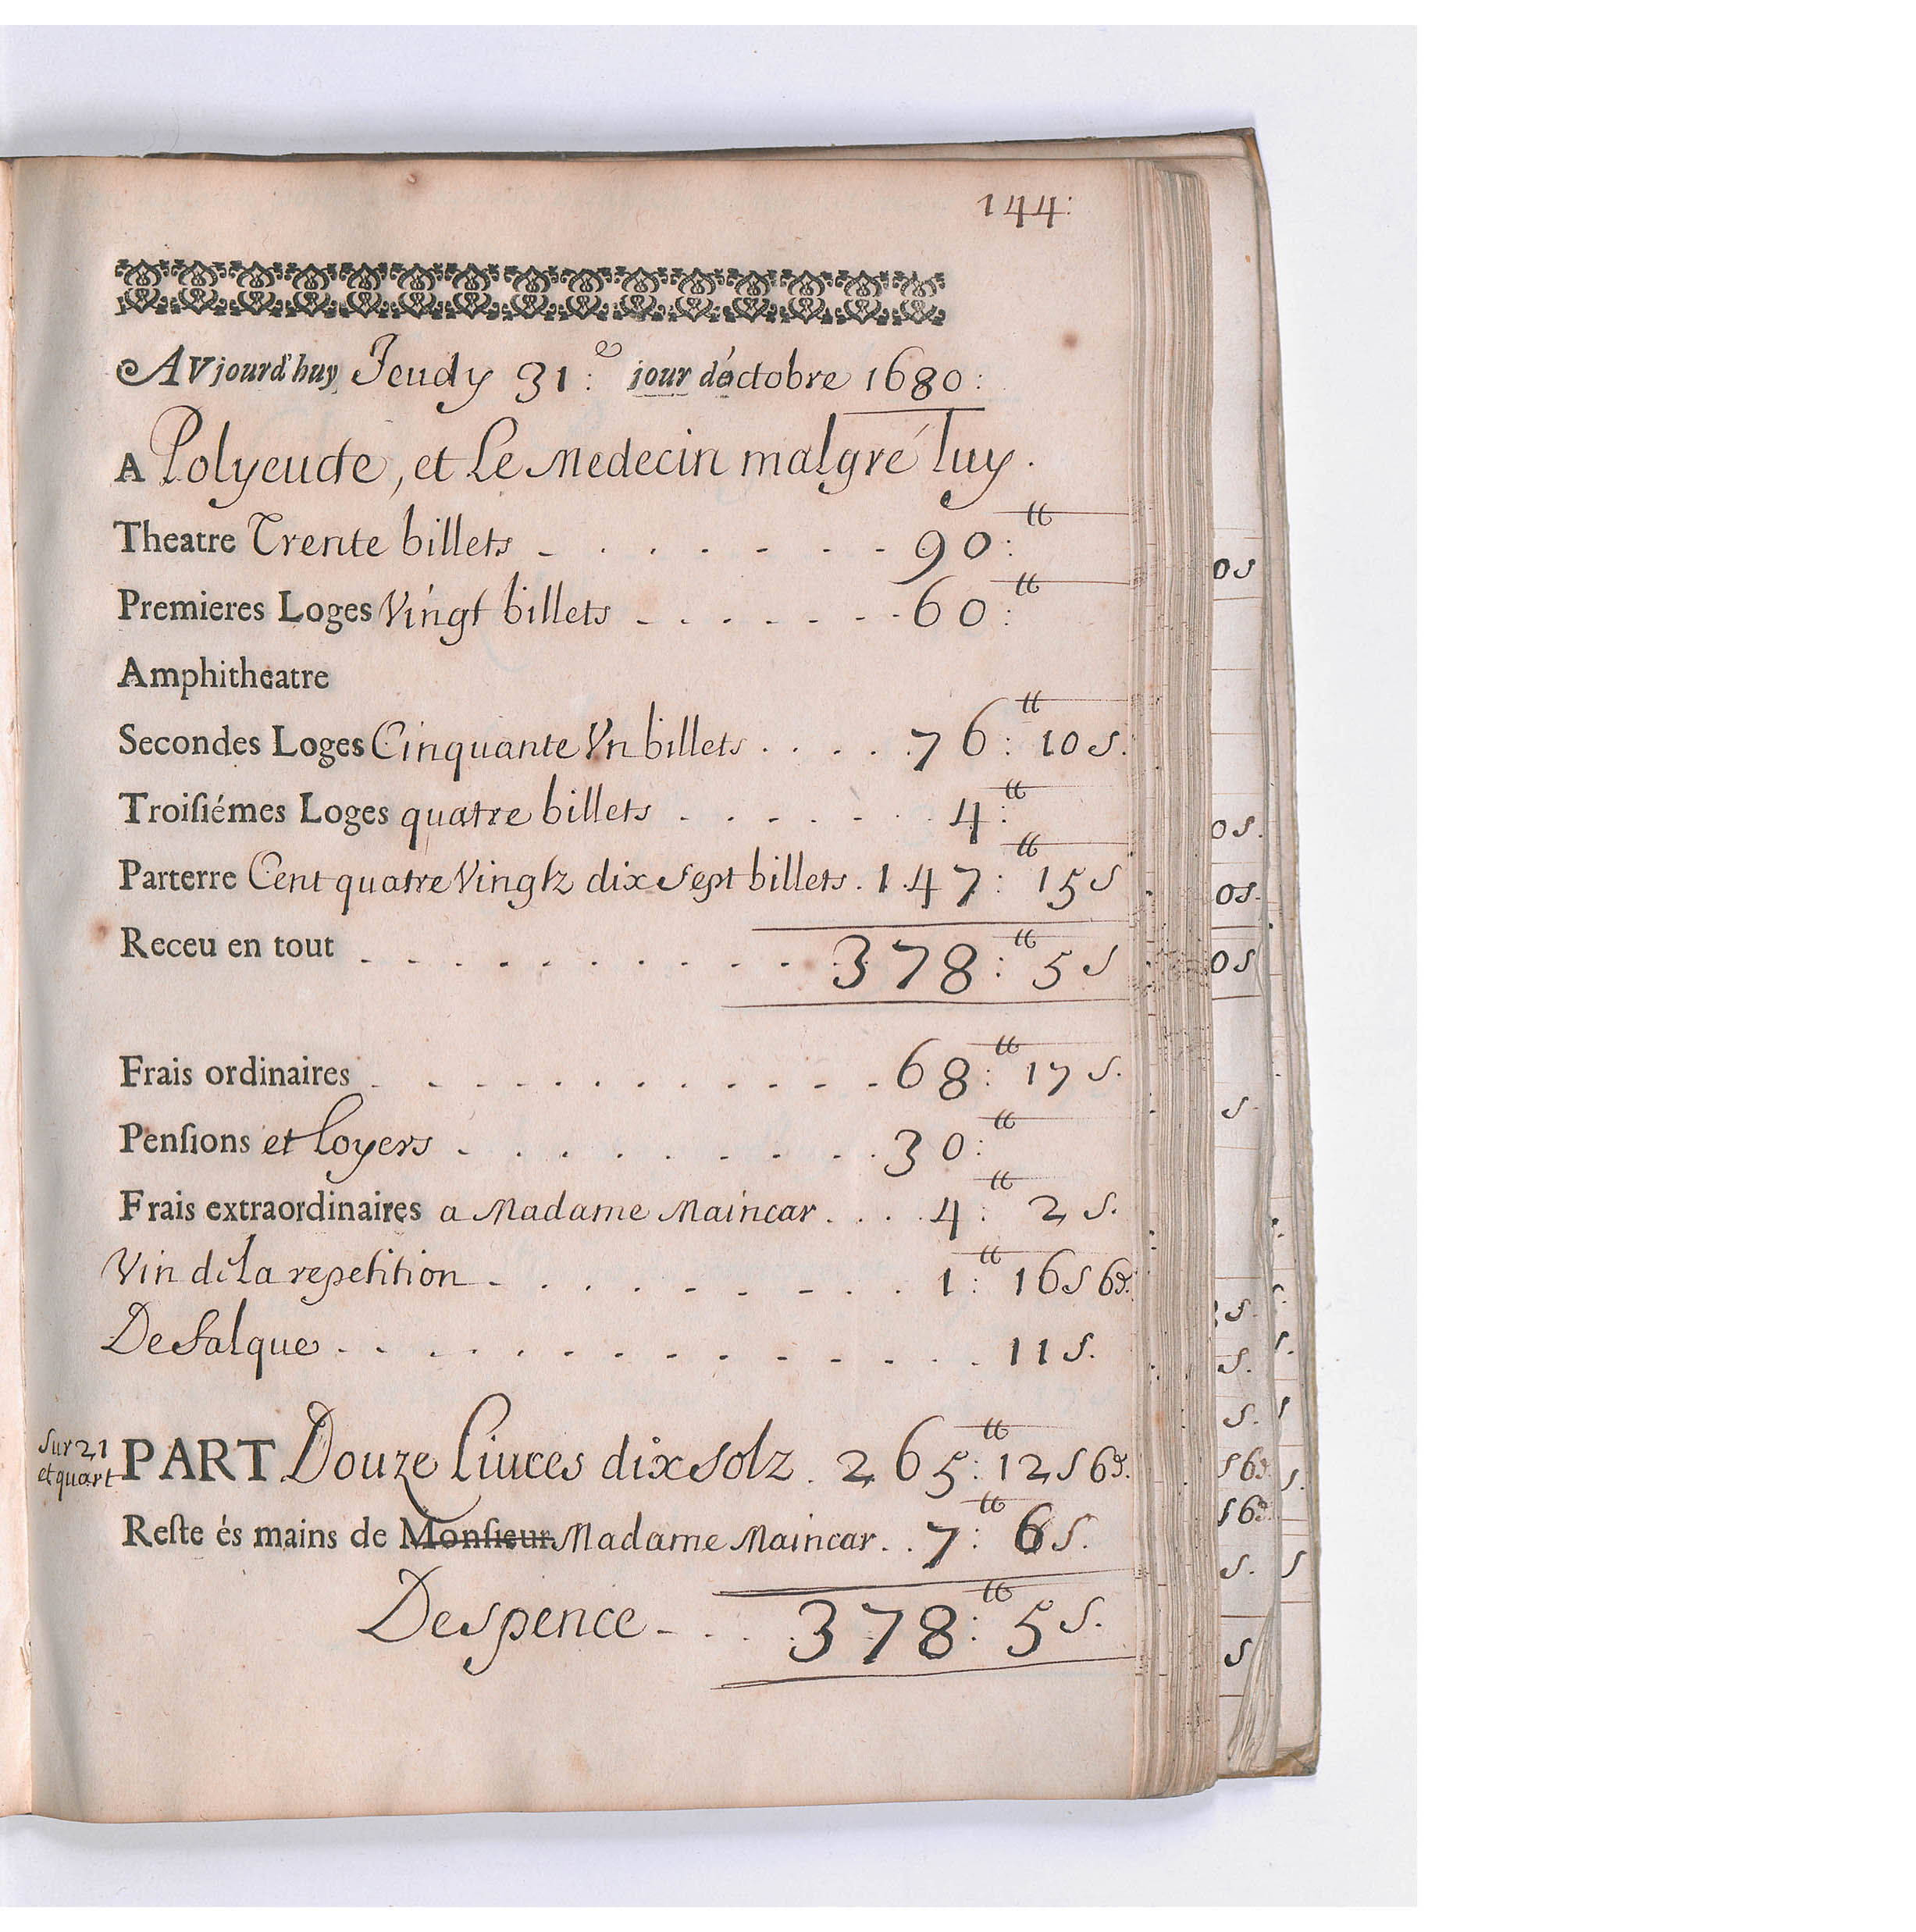 144:
AVjourd'huy Jeudy 31:e jour d'octobre 1680:
A Polyeucte, et Le Medecin malgré luy.
Theatre Trente billets - . . . . . . 90:tt
Premieres Loges Vingt billets - . . . . . . 60:tt
Amphitheatre
Secondes Loges Cinquante Vn billets . . . . 76:tt 10 s.
Troisiémes Loges quatre billets . . . . . . 4:tt
Parterre Cent quatre Vingtz dix Sept billets . 147:tt 15 s
Receu en tout . . . . . . . . . 378:tt 5 s
Frais ordinaires . . . . . . . . . . 68:tt 17 s.
Pensions et loyers . . . . . . . . . 30:tt
Frais extraordinaires a Madame Maincar . . . 4:tt 2 s.
Vin de la repetition - . . . . . . . 1:tt 16 s 6 d.
Defalque . . . . . . . . . . . . . 11 s.
Sur 21
et quart
PART Douze Liures dix solz . 265:tt 12 s 6 d.
Reste és mains de Monsieur Madame Maincar . . 7:tt 6 s.
Despence - . . . 378:tt 5 s.
0 s
0 s.
0 s.
0 s
s.
s.
s.
s.
s 6 d.
s 6 d.
s.
s